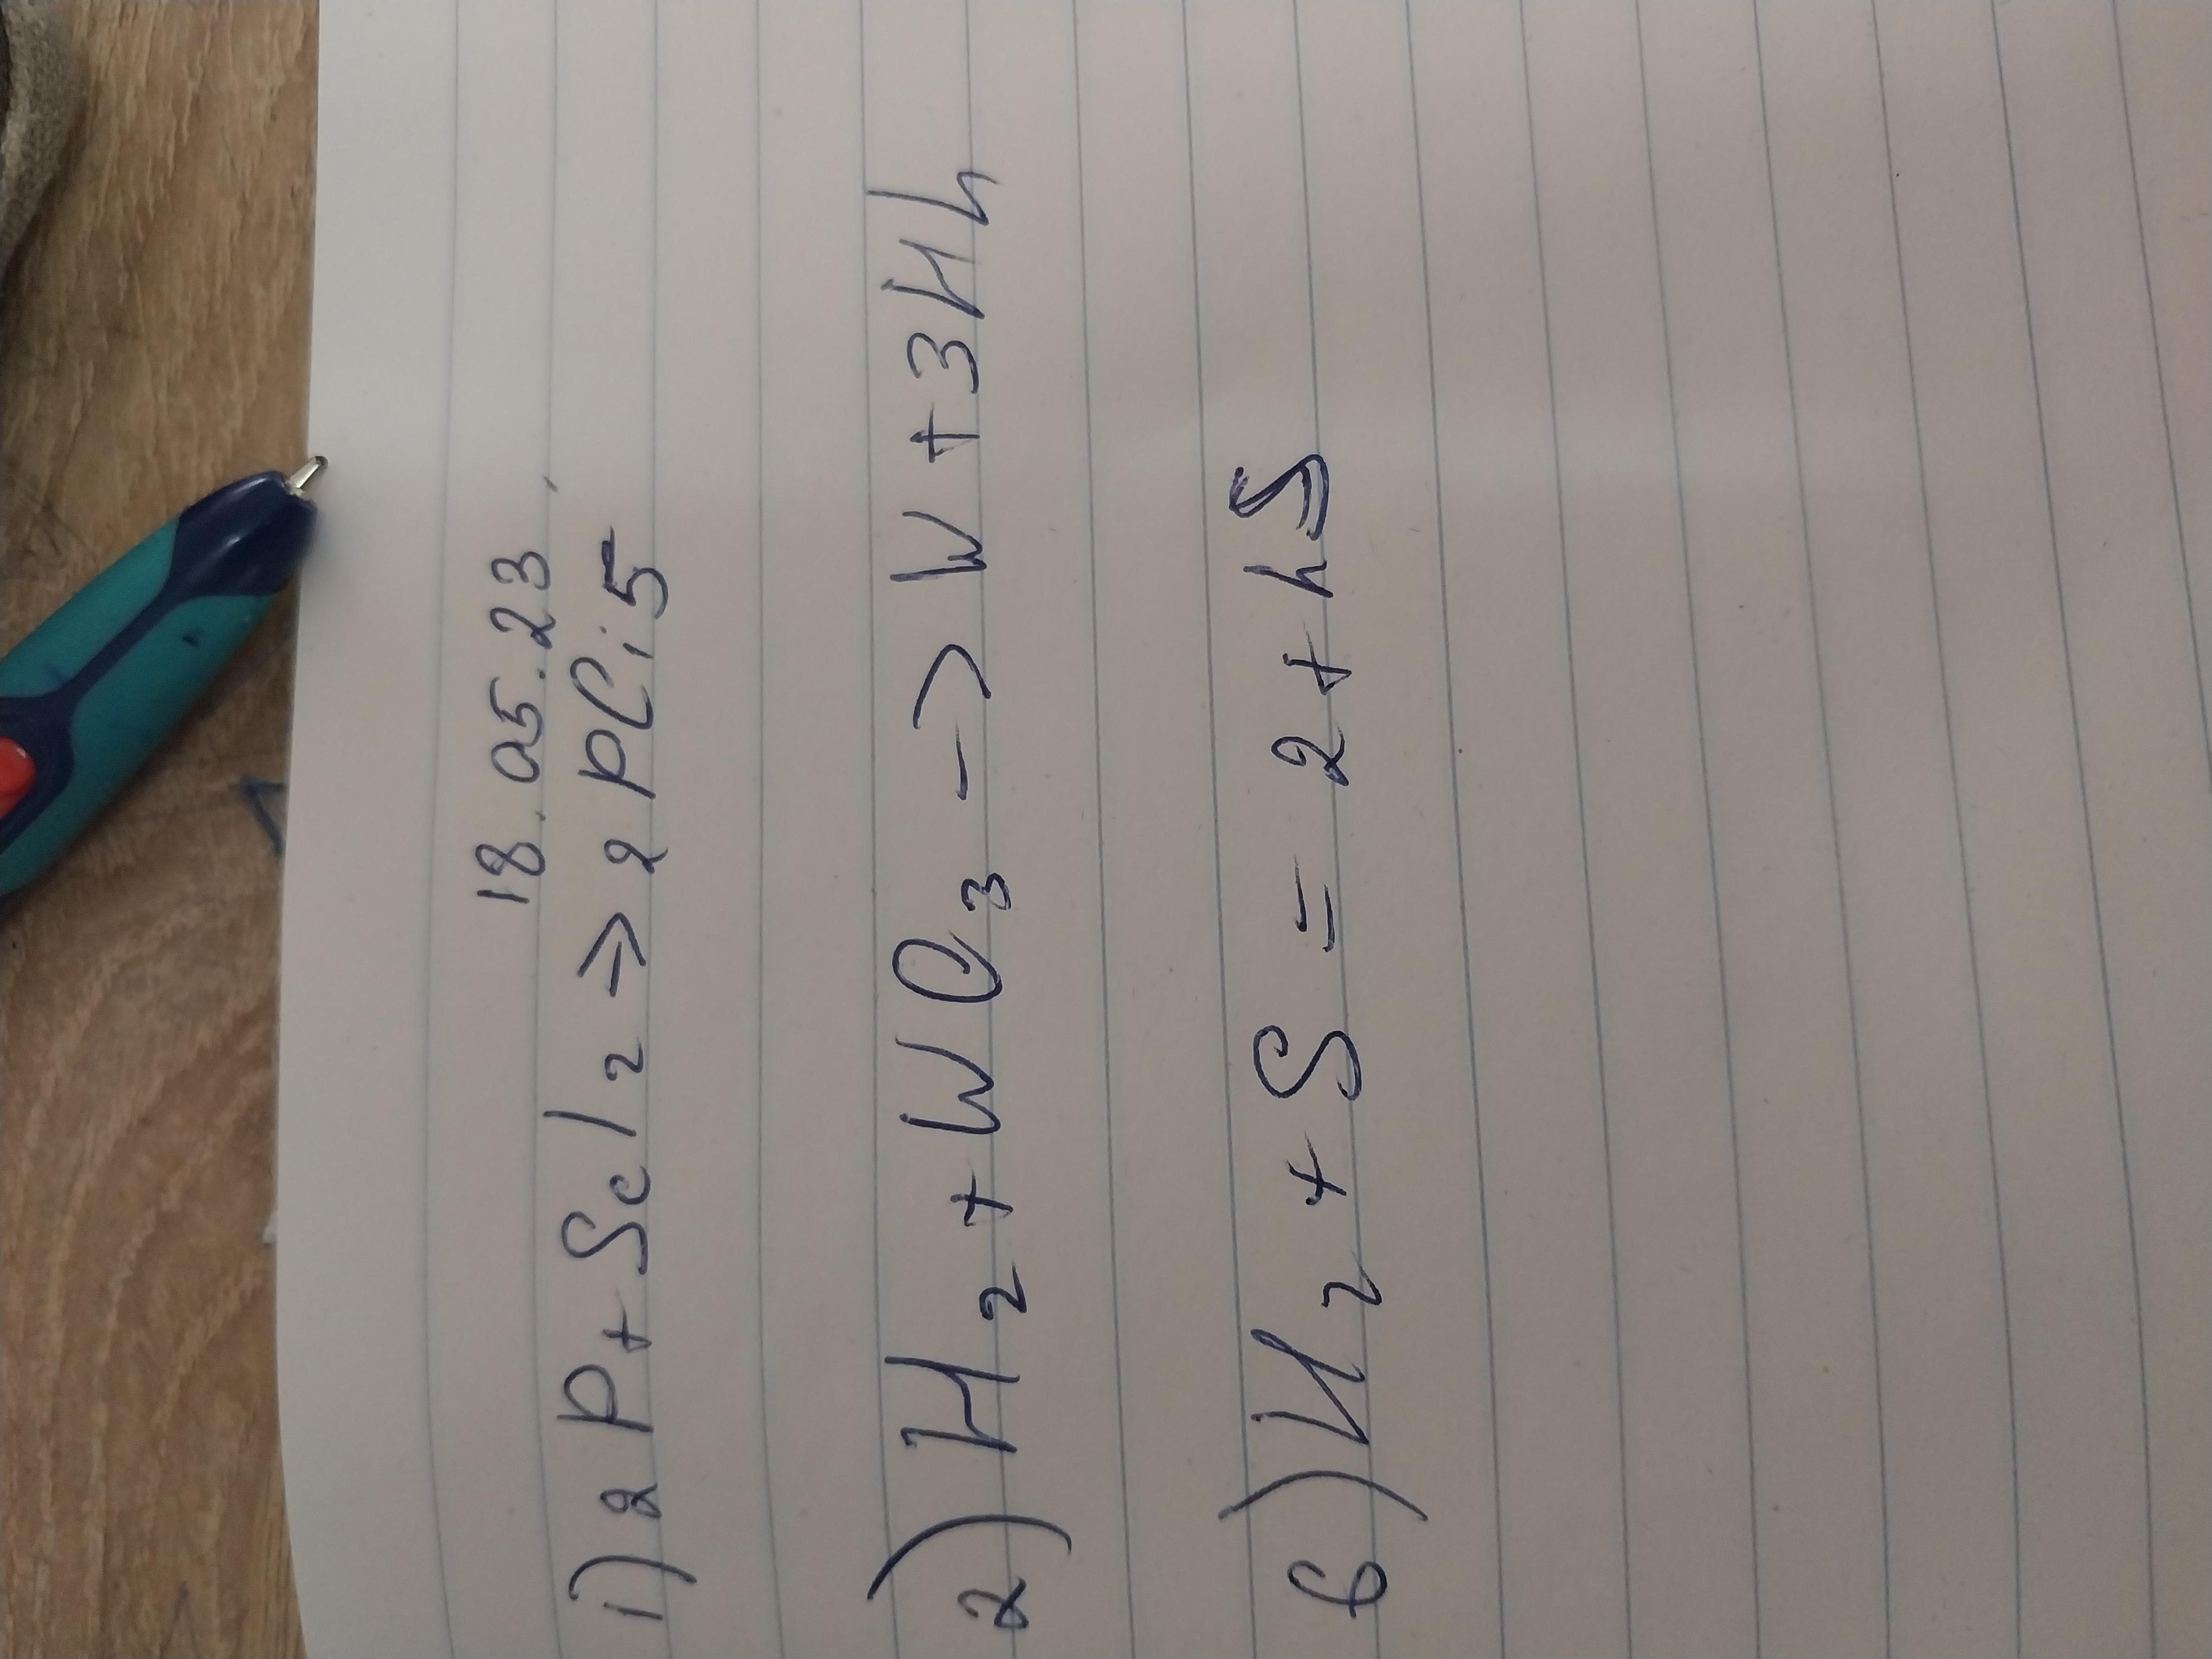 18.05.23
1) 2 P + Scl2 -> 2 PCi5
2) H2 + WO3 -> W + 3H
6) H2 + S = 2 + hS